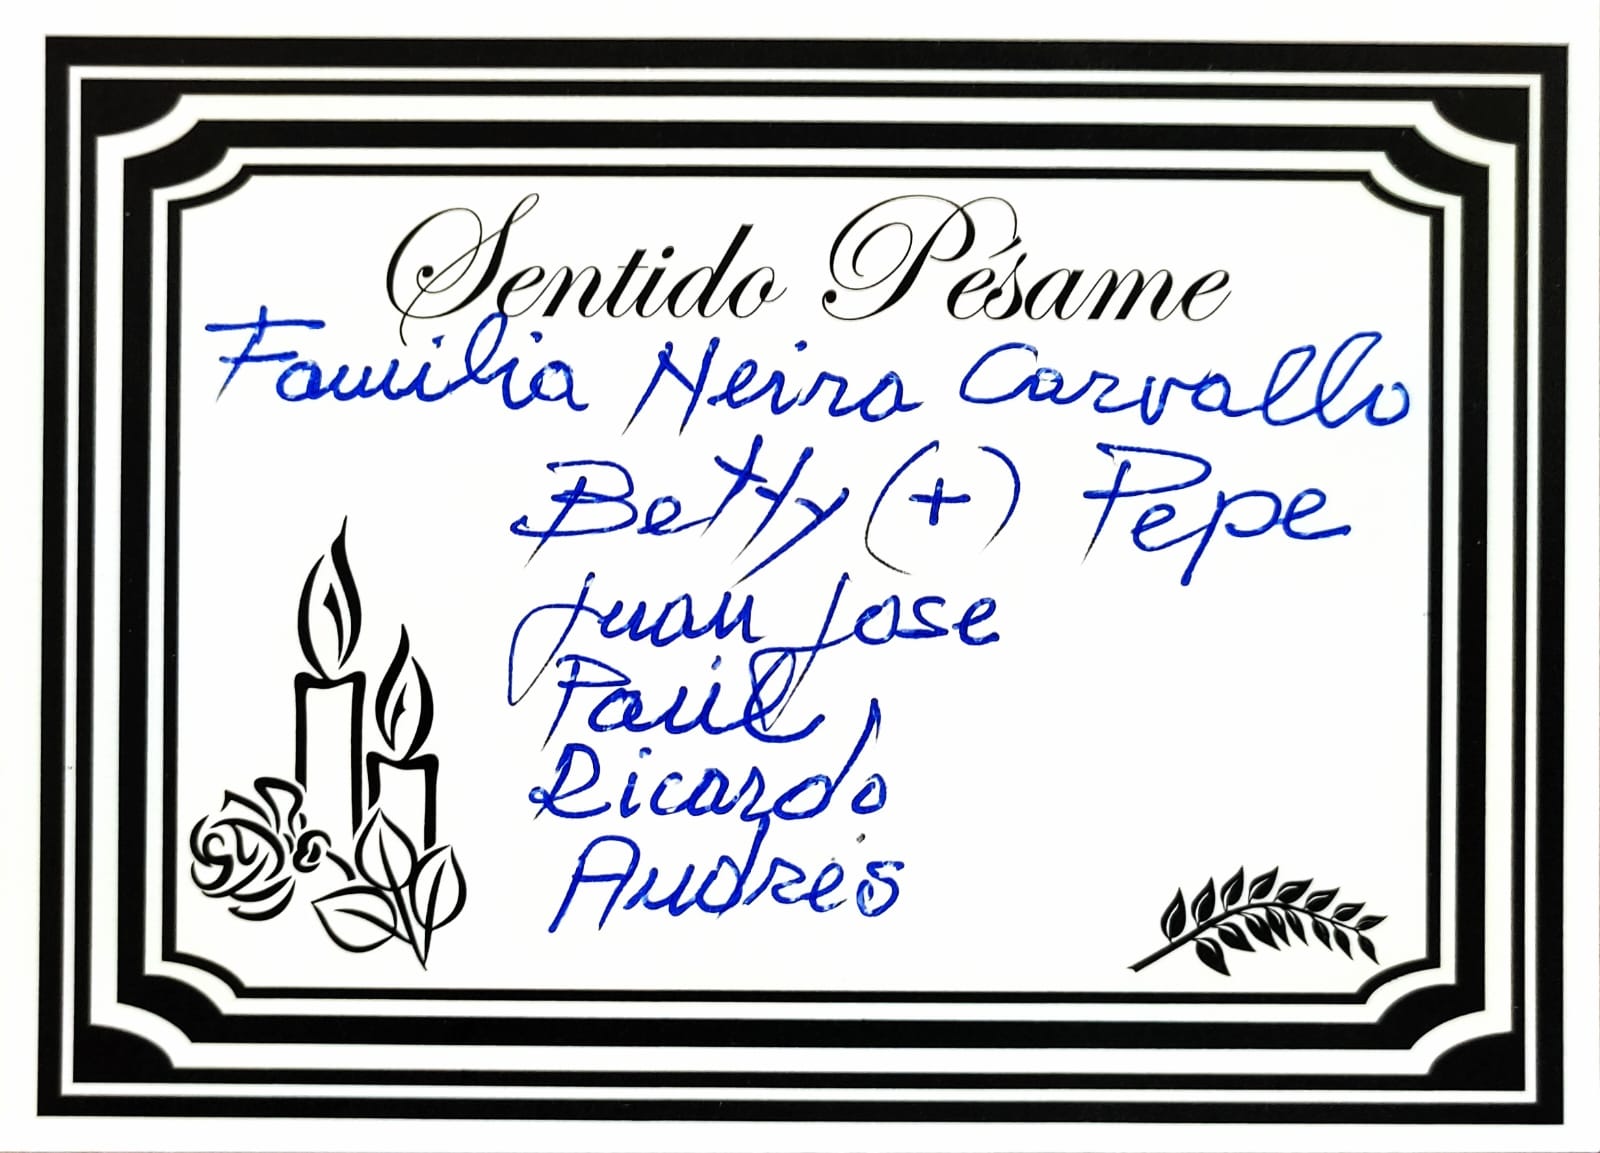 Sentido Pésame
Familia Neira Carvallo
Betty (+) Pepe
Juan Jose
Paúl
Ricardo
Andrés